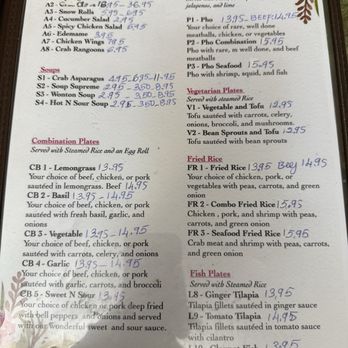 A3 - Snow Rolls 5.75 6.95
A4 - Cucumber Salad 2.95
A5 - Spicy Chicken Salad 6.95
A6 - Edemame 3.95
A7 - Chicken Wings 7.95
A8 - Crab Rangoons 6.95
Soups
S1 - Crab Asparagus 4.95 - 6.95 - 11.95
S2 - Soup Supreme 2.95 - 3.50, 8.95
S3 - Wonton Soup 2.95 - 3.50, 8.95
S4 - Hot N Sour Soup 2.95 3.50, 8.95
Combination Plates
Served with Steamed Rice and an Egg Roll
CB 1 - Lemongrass 13.95
Your choice of beef, chicken, or pork
sautéed in lemongrass. Beef 14.95
CB 2 - Basil 13.95 - 14.95
Your choice of beef, chicken, or pork
sautéed with fresh basil, garlic, and
onions
CB 3 - Vegetable 13.95 - 14.95
Your choice of beef, chicken, or pork
sautéed with carrots, celery, and onions
CB 4 - Garlic 13.95 - 14.95
Your choice of beef, chicken, or pork
sautéed with garlic, carrots, and broccoli
CB 5 - Sweet N Sour 13.95
Your choice of chicken or pork deep fried
with bell peppers and onions and served
with our Wonderful sweet and sour sauce.
jalapenos, and lime
P1 - Pho 13.95 - BEEF 14.95
Your choice of rare, well done
meatballs, chicken, or vegetables
P2 - Pho Combination 15.95
Pho with rare, well done, and beef
meatballs
P3 - Pho Seafood 15.95
Pho with shrimp, squid, and fish
Vegetarian Plates
Served with Steamed Rice
V1 - Vegetable and Tofu 12.95
Tofu sautéed with carrots, celery,
onions, broccoli, and mushrooms.
V2 - Bean Sprouts and Tofu 12.95
Tofu sautéed with bean sprouts
Fried Rice
FR 1 - Fried Rice 13.95 Beef 14.95
Your choice of chicken, pork, or
vegetables with peas, carrots, and
green onion
FR 2 - Combo Fried Rice 15.95
Chicken, pork, and shrimp with peas,
carrots, and green onion
FR 3 - Seafood Fried Rice 15.95
Crab meat and shrimp with peas, carrots,
and green onion
Fish Plates
Served with Steamed Rice
L8 - Ginger Tilapia 13.95
Tilapia fillets sautéed in ginger sauce
L9 - Tomato Tilapia 14.95
Tilapia fillets sautéed in tomato sauce
with cilantro